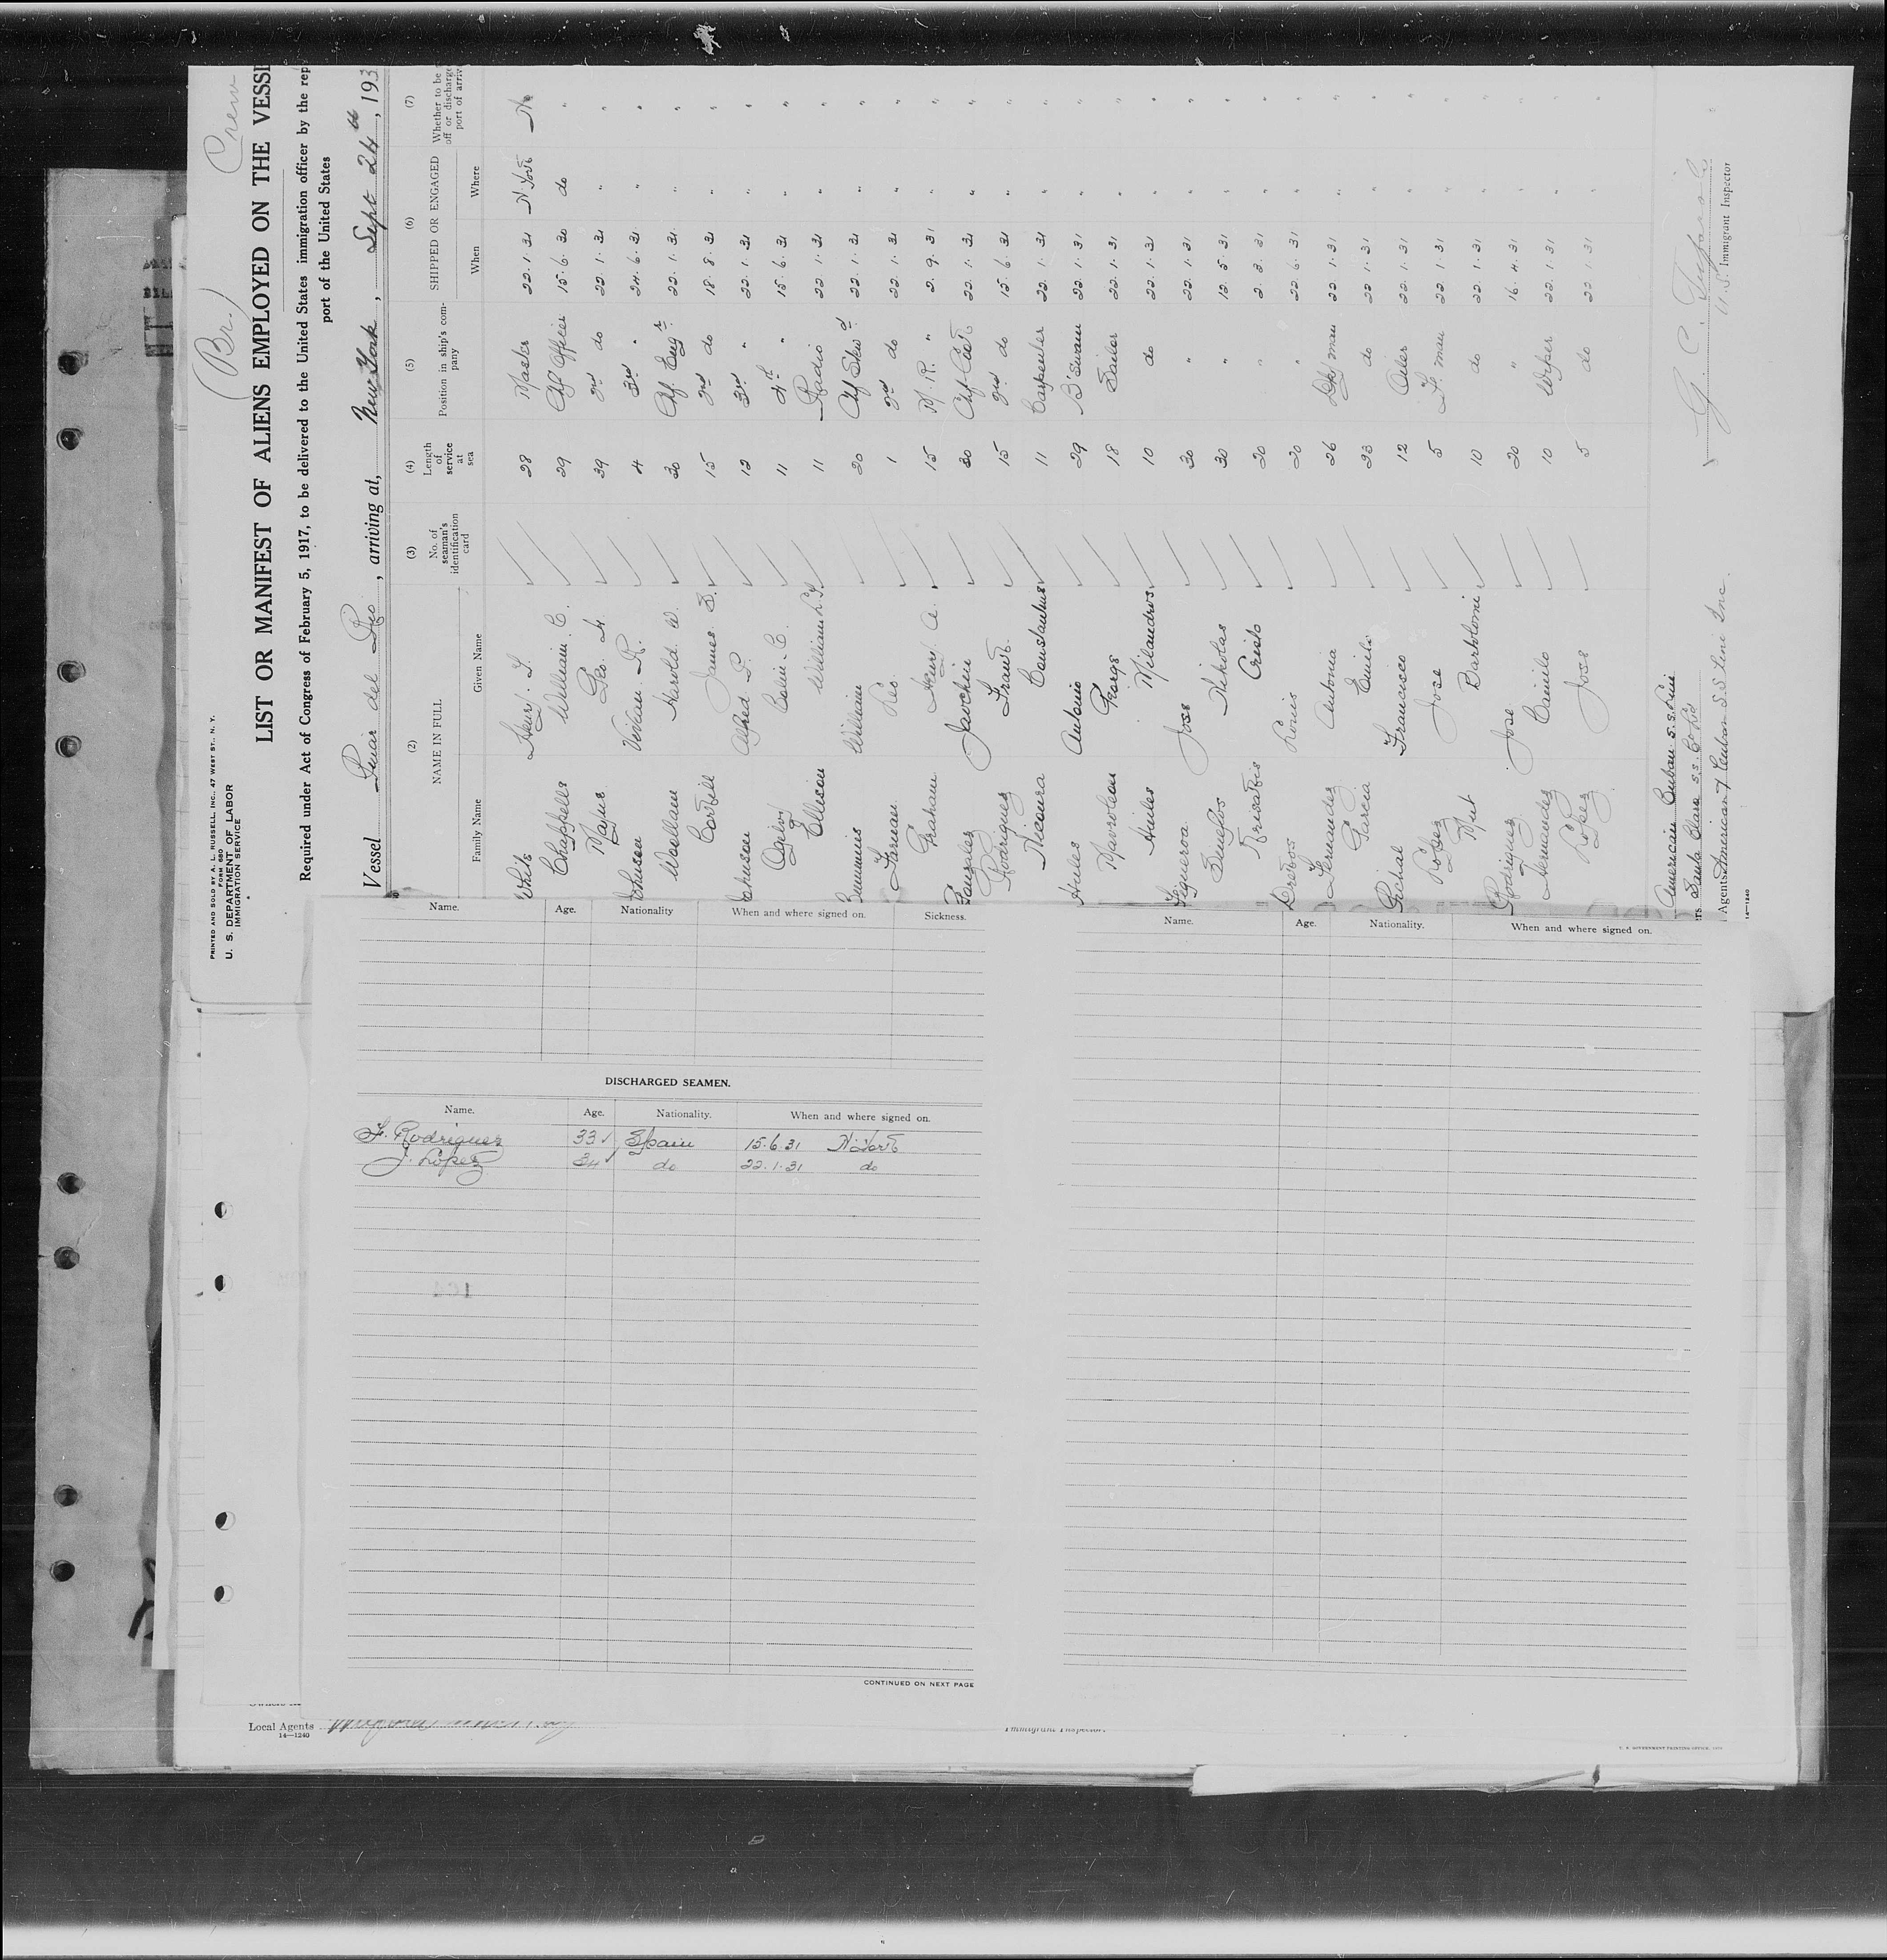 (Br.) Crew
PRINTED AND SOLD BY A. L. RUSSELL, INC., 47 WEST ST., N. Y.
FORM 680
U. S. DEPARTMENT OF LABOR
IMMIGRATION SERVICE
LIST OR MANIFEST OF ALIENS EMPLOYED ON THE VESSE
Required under Act of Congress of February 5, 1917, to be delivered to the United States immigration officer by the rep
port of the United States
Vessel Pinar del Rio, arriving at, New York, Sept 24th, 193
(2) (3) (4) (5) (6) (7)
NAME IN FULL No. of seaman's identification card Length of service at sea Position in ship's company SHIPPED OR ENGAGED Whether to be off or discharge port of arriv
Family Name Given Name When Where
White Henry. L. 28 Master 22.1.31 N York No
Chappelle William. C. 29 Chf Officer 15.6.30 do "
Geo. H. 39 2nd do 22.1.31 " "
Johnson Vivian. R. 4 3rd " 24.6.31 " "
Woollam Harold. W. 30 Chf. Engr. 22.1.31 " "
James. S. 15 2nd do 18.8.31 " "
Johnson Alfred. P. 12 3rd " 22.1.31 " "
Ogilvy Colin. C. 11 4th " 15.6.31 " "
Ellison William L.G. 11 Radio 22.1.31 " "
William 20 Chf Stewd 22.1.31 " "
Leo. 1 2nd do 22.1.31 " "
Graham Henry A. 15 M.R. " 2.9.31 " "
Gonzalez Joaochin 30 Chf Cook 22.1.31 " "
Rodriguez Frank 15 2nd do 15.6.31 " "
Nicoura Constantios 11 Carpenter 22.1.31 " "
Hules Antonio 29 B Swan 22.1.31 " "
Mavroleon George 18 Sailor 22.1.31 " "
Huiles Milandros 10 do 22.1.31 " "
Figueroa Jose 30 " 22.1.31 " "
Nicholas 30 " 12.5.31 " "
Cristo 20 " 2.3.31 " "
Louis 20 " 22.6.31 " "
Fernandez Antonia 26 Dkyman 22.1.31 " "
Garcia Emilio 23 do 22.1.31 " "
Pichal Francisco 12 Oiler 22.1.31 " "
Lopez Jose 5 F. man 22.1.31 " "
Mut Bartolomi 10 do 22.1.31 " "
Rodriguez Jose 20 " 16.4.31 " "
Hermundez Camilo 10 Wiper 22.1.31 " "
Lopez Jose 5 do 22.1.31 " "
American Cuban S.S. Line
rs Santa Clara S.S. Co Ltd
Agents American & Cuban S S Line Inc.
U.S. Immigrant Inspector
14—1240
Name. Age. Nationality When and where signed on. Sickness.
DISCHARGED SEAMEN.
Name. Age. Nationality. When and where signed on.
F. Rodriguez 33 Spain 15.6.31 N York
J. Lopez 34 do 22.1.31 do
CONTINUED ON NEXT PAGE
Name. Age. Nationality. When and where signed on.
Local Agents
14—1240
Immigrant Inspector.